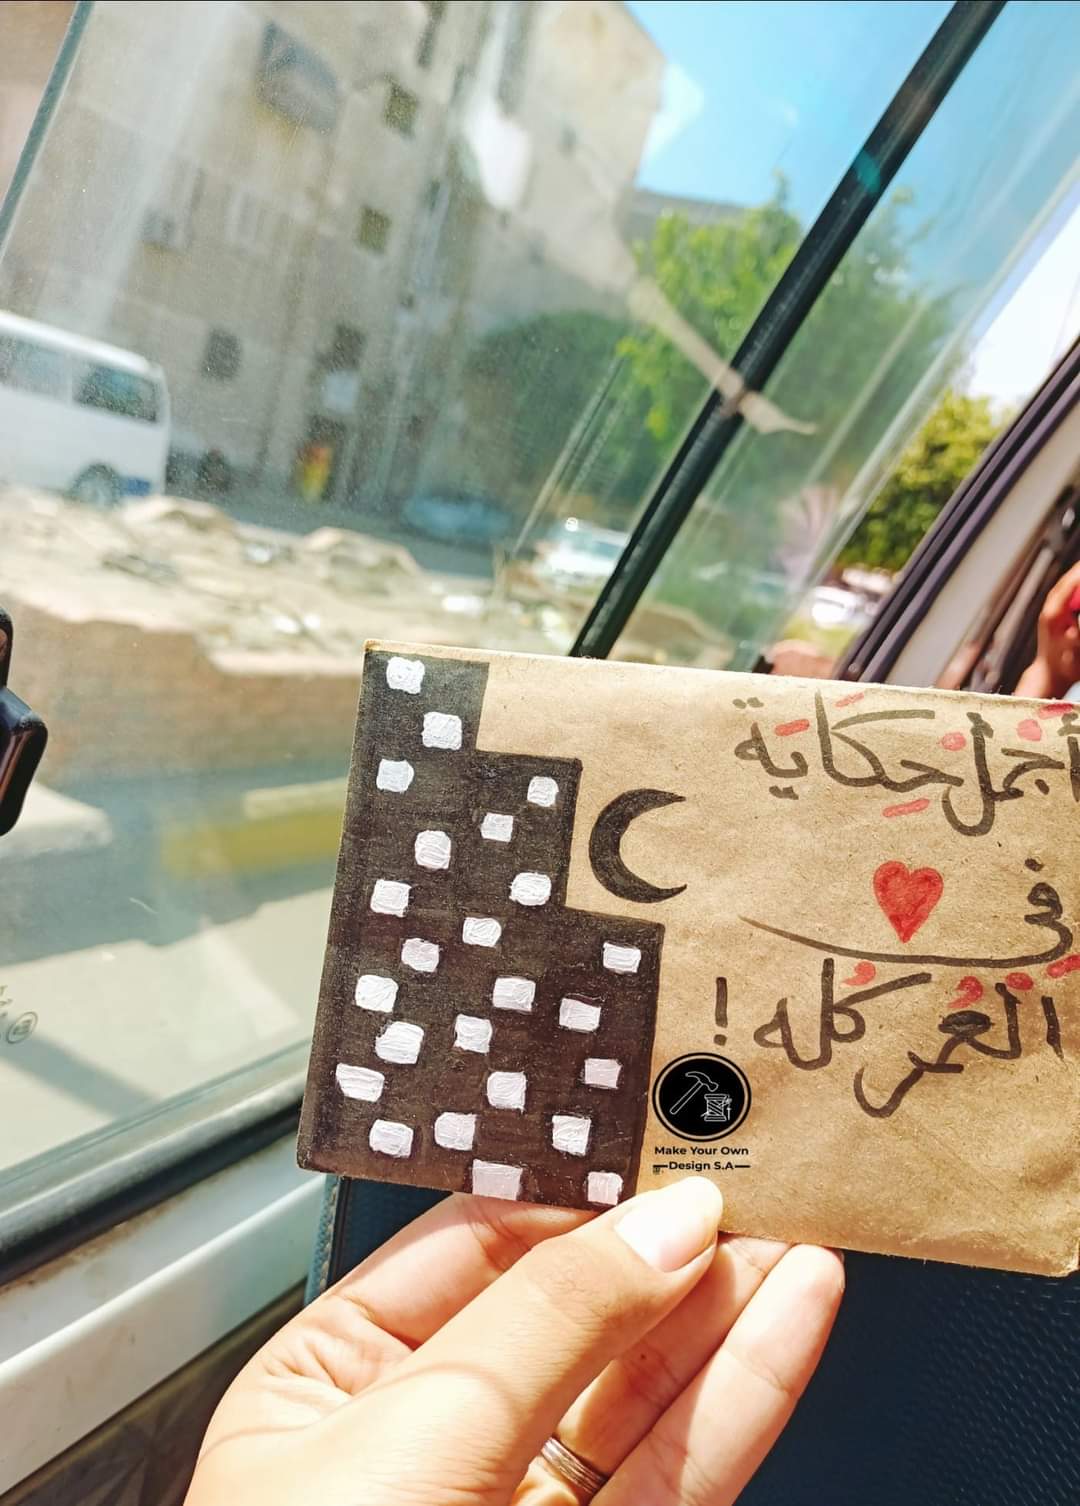 أجمل حِكَايَة
في
العُمر كُله !
Make Your Own
Design S.A